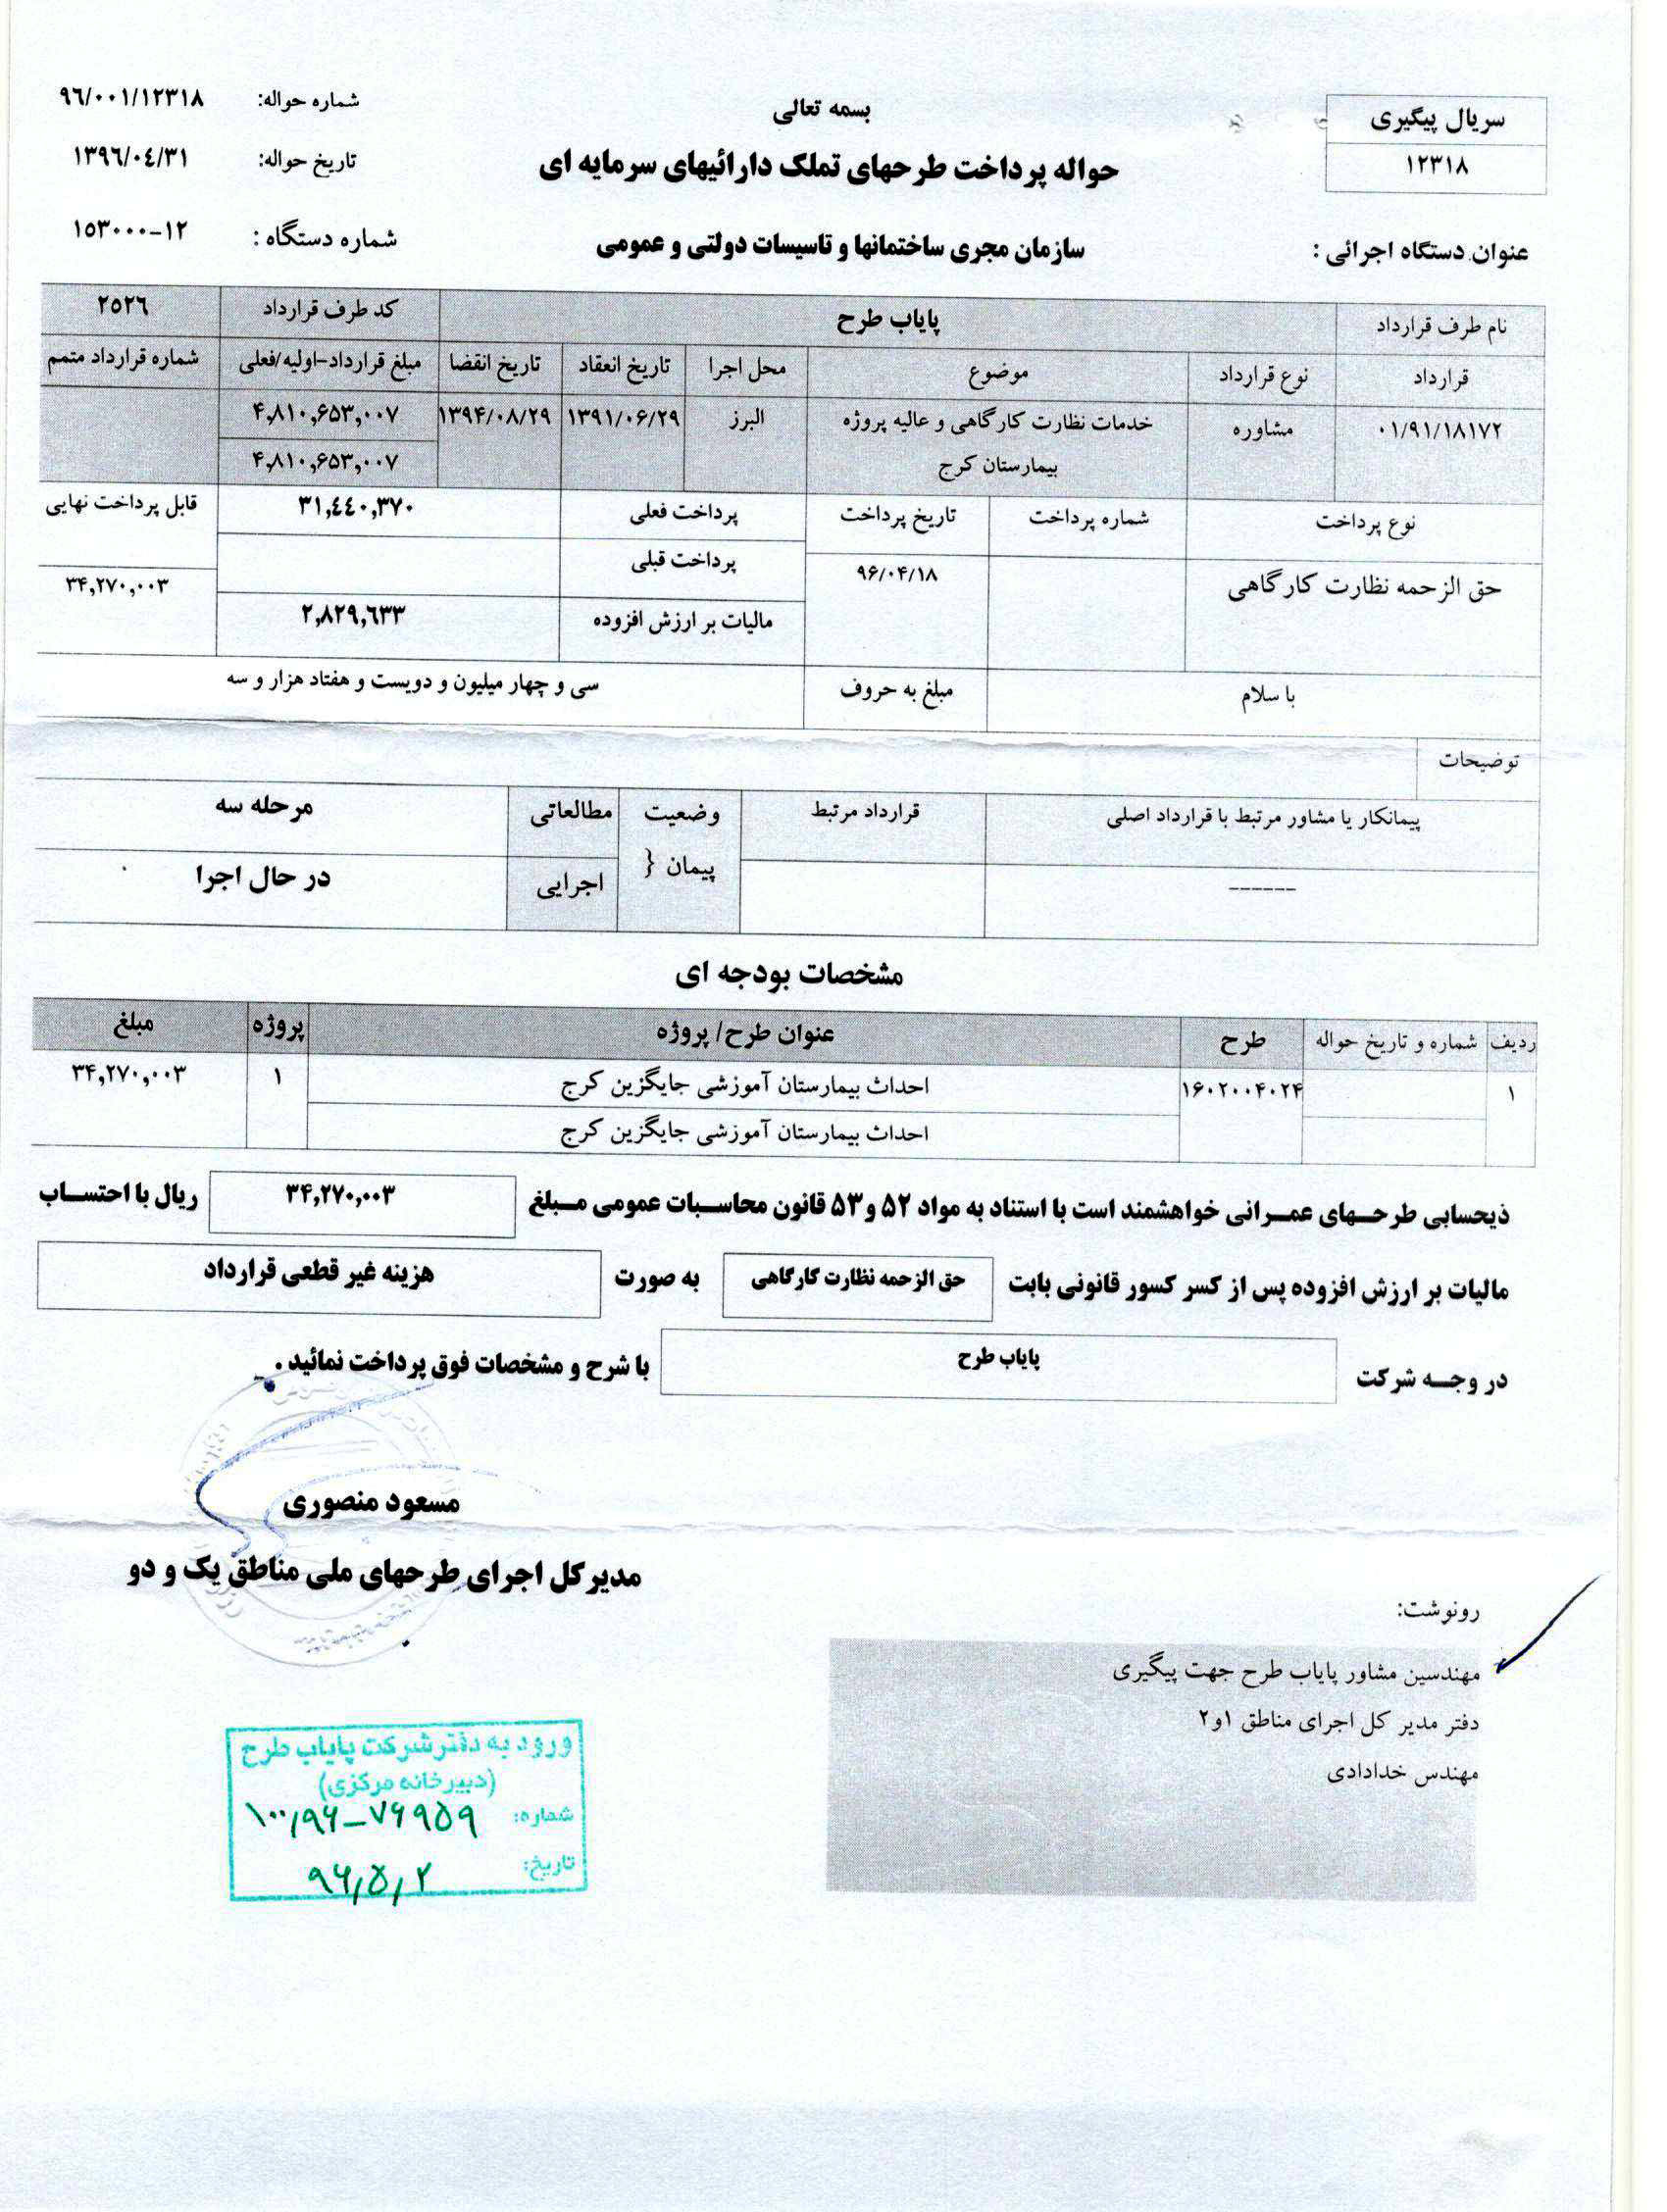 بسمه تعالی
سریال پیگیری
۱۲۳۱۸
شماره حواله: ۹۶/۰۰۱/۱۲۳۱۸
حواله پرداخت طرحهای تملک دارائیهای سرمایه ای
تاریخ حواله: ۱۳۹۶/۰۴/۳۱
عنوان دستگاه اجرائی : سازمان مجری ساختمانها و تاسیسات دولتی و عمومی شماره دستگاه : ۱۵۳۰۰۰-۱۲
نام طرف قرارداد پایاب طرح کد طرف قرارداد ۲۵۲۶
قرارداد نوع قرارداد موضوع محل اجرا تاریخ انعقاد تاریخ انقضا مبلغ قرارداد-اولیه/فعلی شماره قرارداد متمم
۰۱/۹۱/۱۸۱۷۲ مشاوره خدمات نظارت کارگاهی و عالیه پروژه البرز ۱۳۹۱/۰۶/۲۹ ۱۳۹۴/۰۸/۲۹ ۴,۸۱۰,۶۵۳,۰۰۷
بیمارستان کرج ۴,۸۱۰,۶۵۳,۰۰۷
نوع پرداخت شماره پرداخت تاریخ پرداخت پرداخت فعلی ۳۱,۴۴۰,۳۷۰ قابل پرداخت نهایی
حق الزحمه نظارت کارگاهی ۹۶/۰۴/۱۸ پرداخت قبلی ۳۴,۲۷۰,۰۰۳
مالیات بر ارزش افزوده ۲,۸۲۹,۶۳۳
با سلام مبلغ به حروف سی و چهار میلیون و دویست و هفتاد هزار و سه
توضیحات
پیمانکار یا مشاور مرتبط با قرارداد اصلی قرارداد مرتبط وضعیت مطالعاتی مرحله سه
------ پیمان { اجرایی در حال اجرا
مشخصات بودجه ای
ردیف شماره و تاریخ حواله طرح عنوان طرح/ پروژه پروژه مبلغ
۱ ۱۶۰۲۰۰۴۰۲۴ احداث بیمارستان آموزشی جایگزین کرج ۱ ۳۴,۲۷۰,۰۰۳
احداث بیمارستان آموزشی جایگزین کرج
ذیحسابی طرحهای عمرانی خواهشمند است با استناد به مواد ۵۲ و ۵۳ قانون محاسبات عمومی مبلغ ۳۴,۲۷۰,۰۰۳ ریال با احتساب
مالیات بر ارزش افزوده پس از کسر کسور قانونی بابت حق الزحمه نظارت کارگاهی به صورت هزینه غیر قطعی قرارداد
در وجه شرکت پایاب طرح با شرح و مشخصات فوق پرداخت نمائید .
مسعود منصوری
مدیرکل اجرای طرحهای ملی مناطق یک و دو
رونوشت:
مهندسین مشاور پایاب طرح جهت پیگیری
دفتر مدیر کل اجرای مناطق ۱و۲
مهندس خدادادی
ورود به دفتر شرکت پایاب طرح
(دبیرخانه مرکزی)
شماره: ۱۰۰/۹۶-۷۶۹۵۹
تاریخ: ۹۶/۵/۲